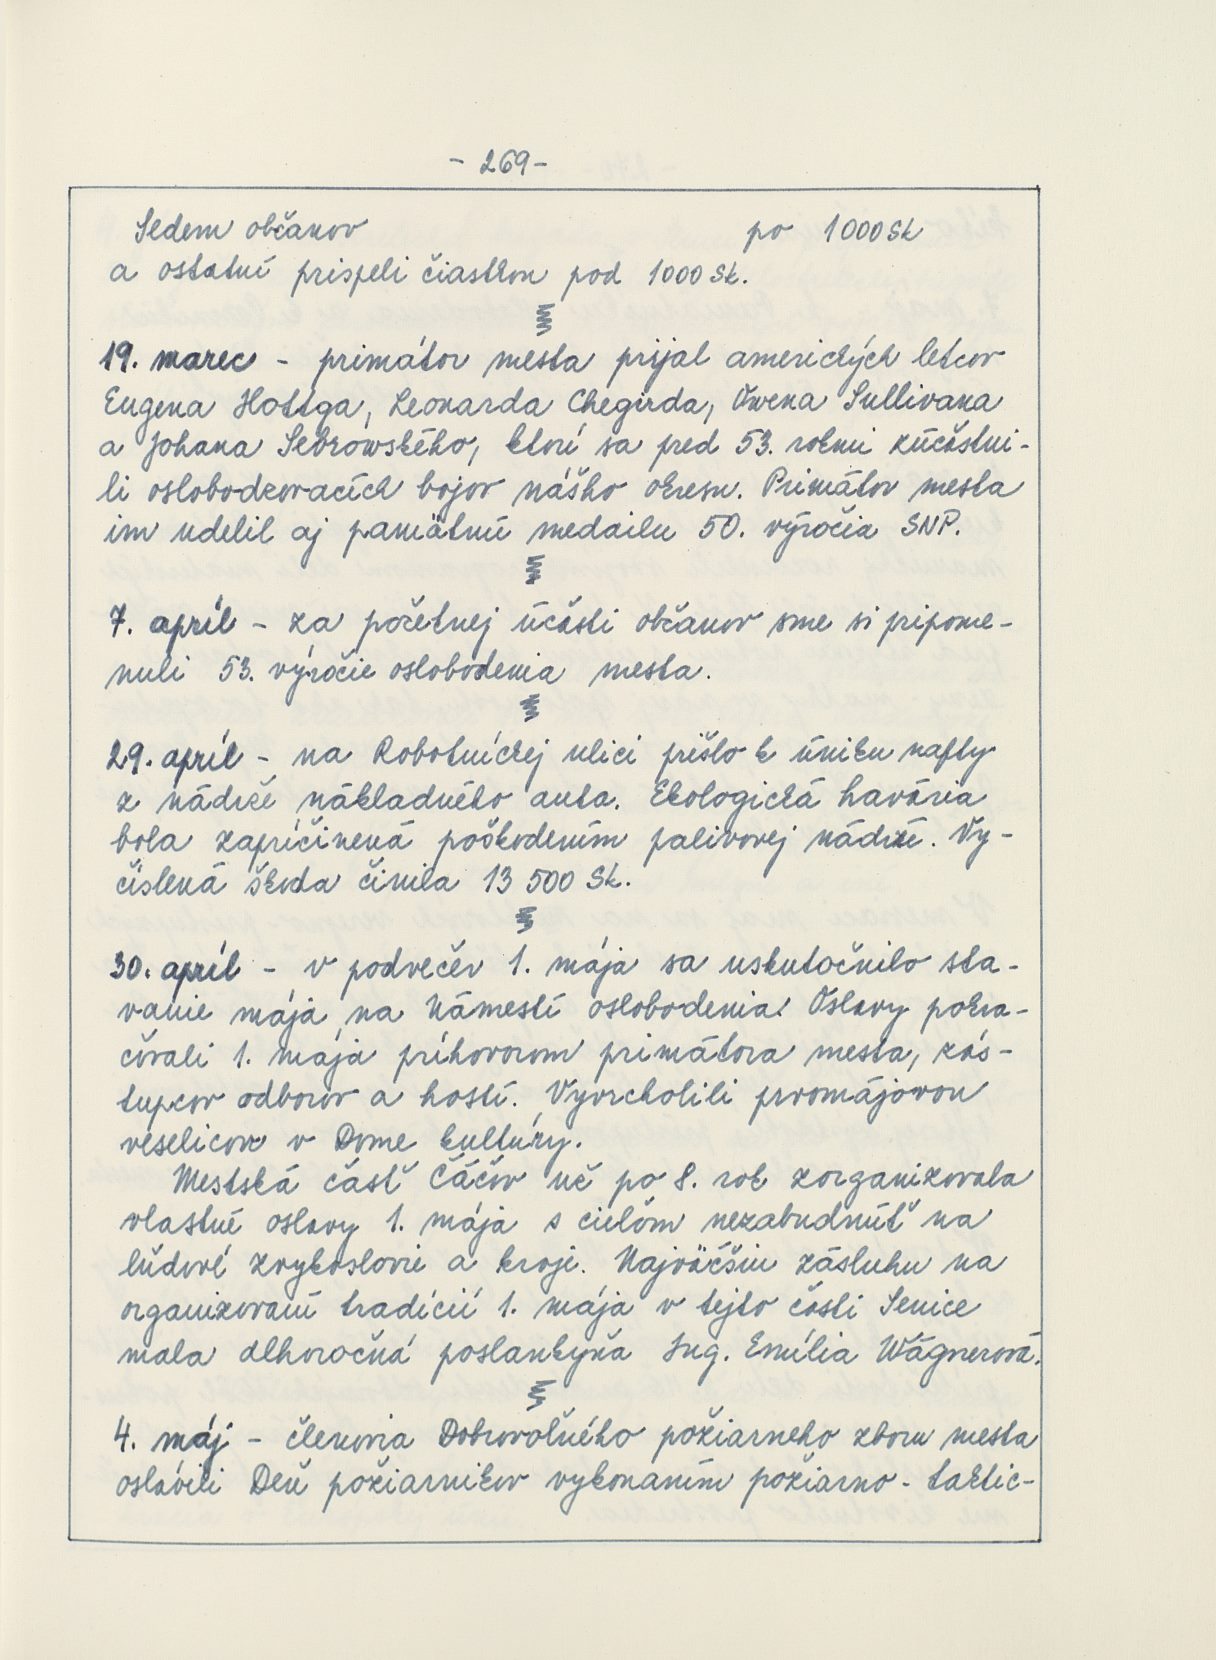 - 269 -
Sedem občanov po 1000 Sk
a ostatní prispeli čiastkou pod 1000 Sk.
19. marec - primátor mesta prijal amerických letcov
Eugena Hottga, Leonarda Chegirda, Owena Sullivana
a Johana Sebrowského, ktorí sa pred 53. rokmi zúčastni-
li oslobodzovacích bojov nášho okresu. Primátor mesta
im udelil aj pamätnú medailu 50. výročia SNP.
7. apríl - za početnej účasti občanov sme si pripome-
nuli 53. výročie oslobodenia mesta.
29. apríl - na Robotníckej ulici prišlo k úniku nafty
z nádrže nákladného auta. Ekologická havária
bola zapríčinená poškodením palivovej nádrže. Vy-
číslená škoda činila 13 500 Sk.
30. apríl - v podvečer 1. mája sa uskutočnilo sta-
vanie mája na Námestí oslobodenia. Oslavy pokra-
čovali 1. mája príhovorom primátora mesta, zás-
tupcov odborov a hostí. Vyvrcholili prvomájovou
veselicou v Dome kultúry.
Mestská časť Čáčov už po 8. rok zorganizovala
vlastné oslavy 1. mája s cieľom nezabudnúť na
ľudové zvykoslovie a kroje. Najväčšiu zásluhu na
organizovaní tradícií 1. mája v tejto časti Senice
mala dlhoročná poslankyňa Ing. Emília Wágnerová.
4. máj - členovia Dobrovoľného požiarneho zboru mesta
oslávili Deň požiarnikov vykonaním požiarno - taktic-